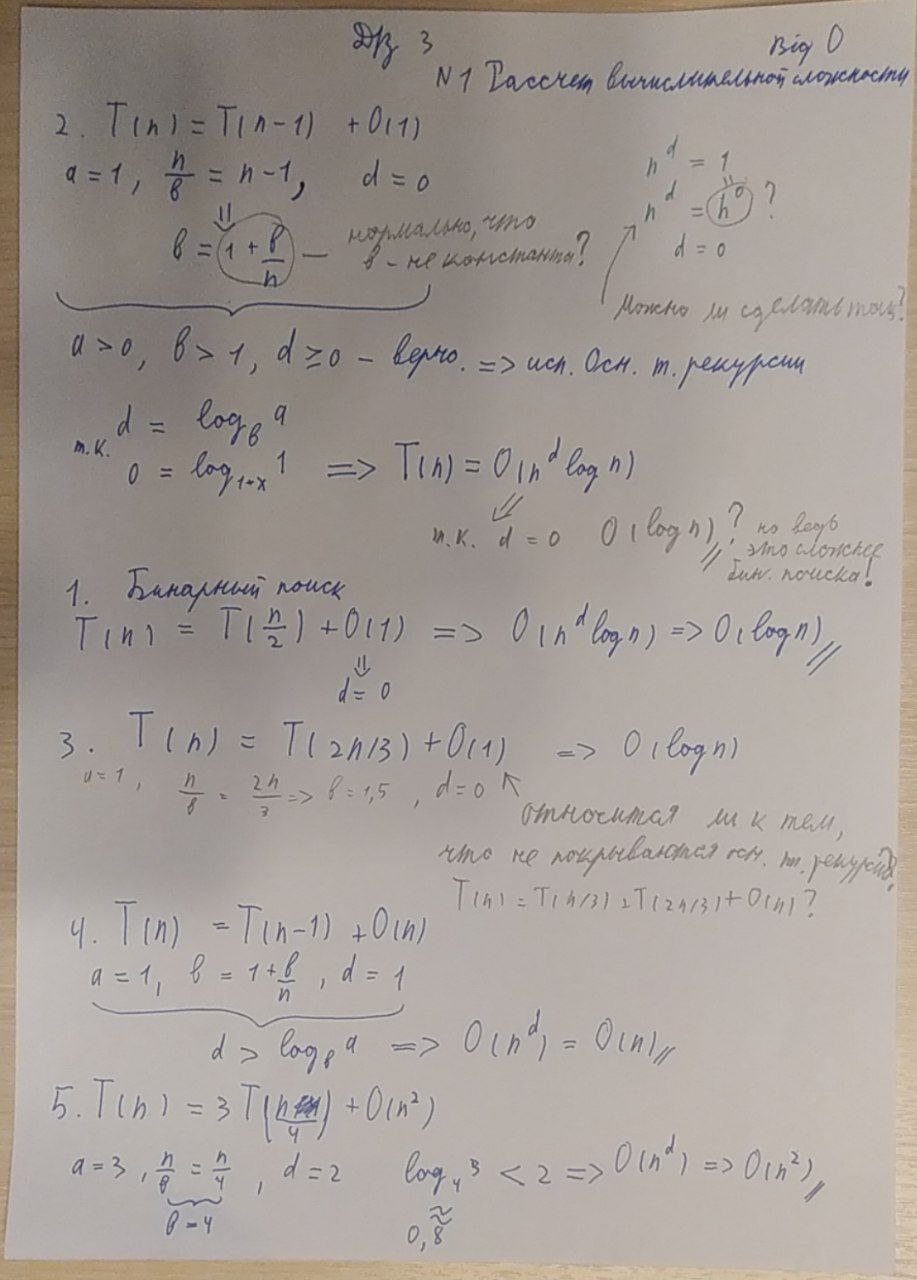 ДЗ 3
Big O
N1 Рассчет вычислительной сложности
2. T(n) = T(n-1) + O(1)
a = 1, n/b = n-1, d = 0
⇓
b = 1 + b/n — нормально, что
b - не константа?
n^d = 1
n^d = n^0 ?
d = 0
Можно ли сделать так?
a > 0, b > 1, d ≥ 0 - верно. => исп. Осн. т. рекурсии
т.к. d = log_b a
0 = log_{1+x} 1 => T(n) = O(n^d log n)
т.к. d = 0 O(log n)? но ведь
это сложнее
бин. поиска!
1. Бинарный поиск
T(n) = T(n/2) + O(1) => O(n^d log n) => O(log n)
⇓
d = 0
3. T(n) = T(2n/3) + O(1) => O(log n)
a = 1, n/b = 2n/3 => b = 1,5, d = 0
относится ли к тем,
что не покрываются осн. т. рекурсии?
T(n) = T(n/3) + T(2n/3) + O(n)?
4. T(n) = T(n-1) + O(n)
a = 1, b = 1 + b/n, d = 1
d > log_b a => O(n^d) = O(n)
5. T(n) = 3T(n/4) + O(n²)
a = 3, n/b = n/4, d = 2 log_4 3 < 2 => O(n^d) => O(n²)
b = 4
≈
0,8